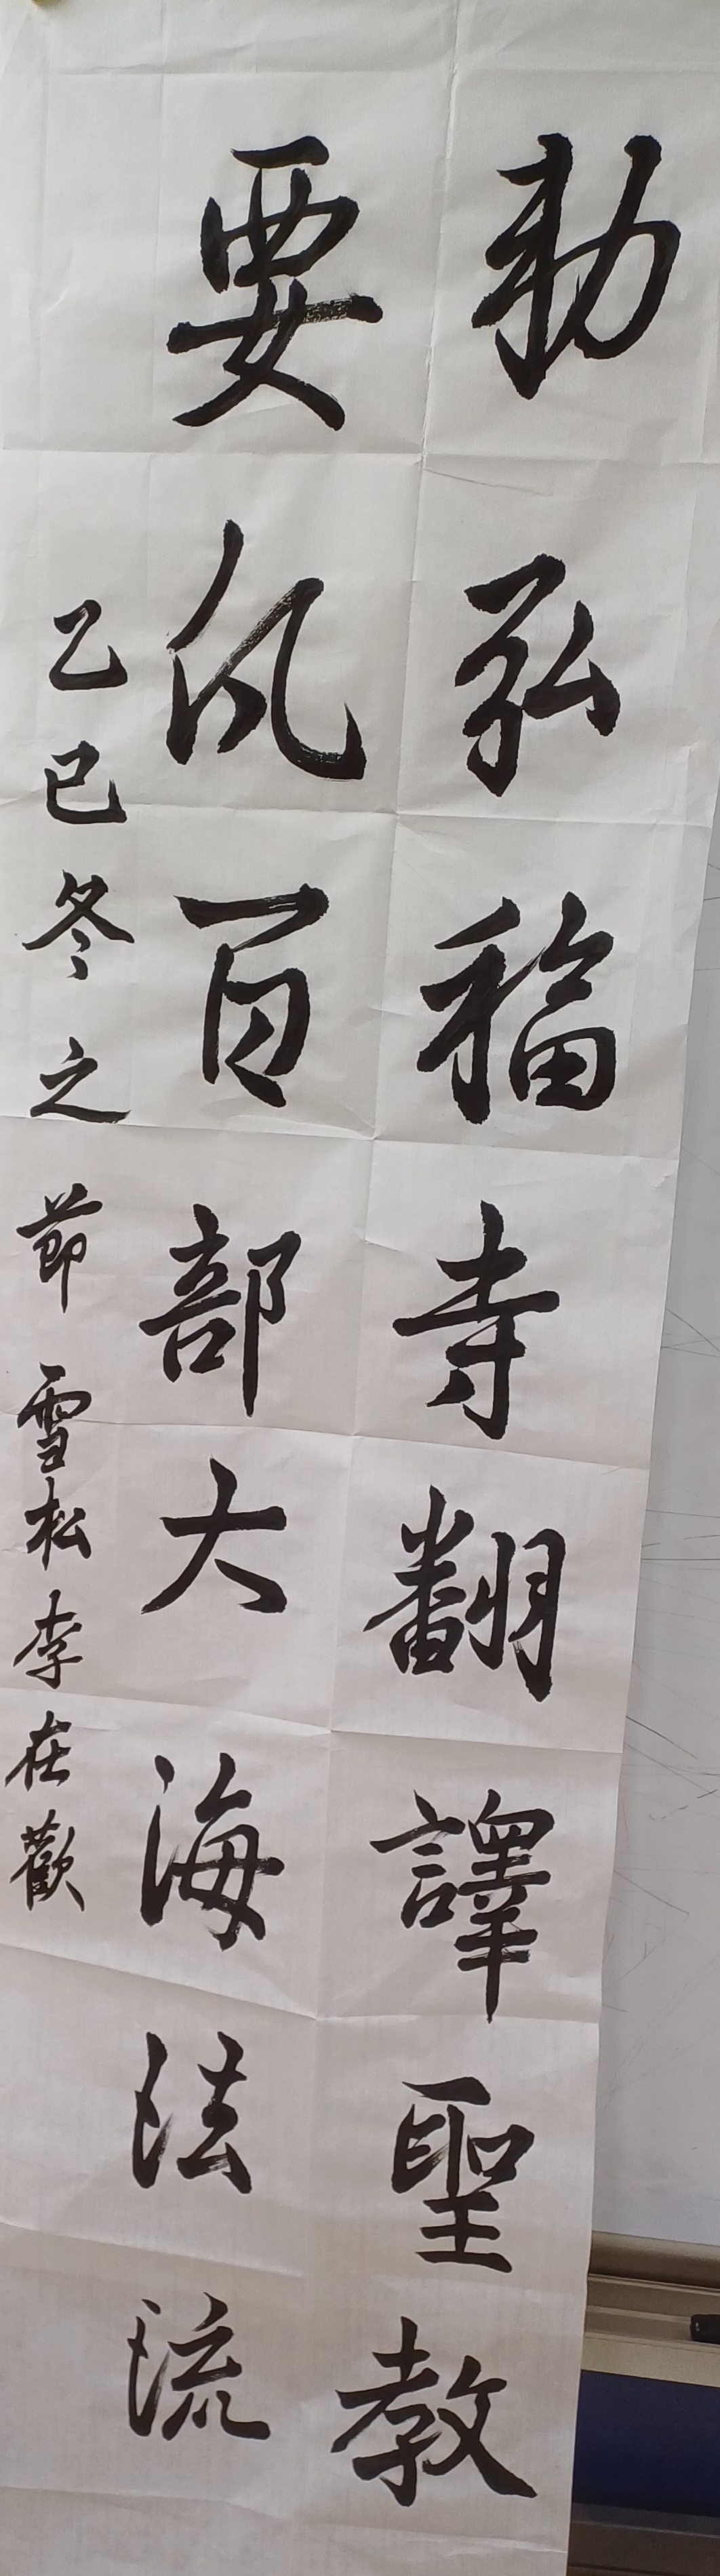 勅弘福寺翻譯聖教
要凡百部大海法流
乙巳冬之節雪松李在歡